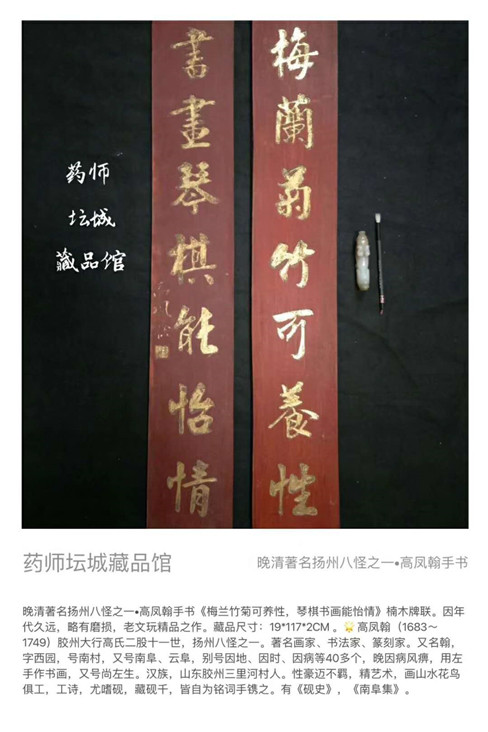 梅蘭菊竹可養性
書畫琴棋能怡情
药师
坛城
藏品馆
药师坛城藏品馆
晚清著名扬州八怪之一•高凤翰手书
晚清著名扬州八怪之一•高凤翰手书《梅兰竹菊可养性，琴棋书画能怡情》楠木牌联。因年
代久远，略有磨损，老文玩精品之作。藏品尺寸：19*117*2CM 。🌟高凤翰（1683～
1749）胶州大行高氏二股十一世，扬州八怪之一。著名画家、书法家、篆刻家。又名翰，
字西园，号南村，又号南阜、云阜，别号因地、因时、因病等40多个，晚因病风痹，用左
手作书画，又号尚左生。汉族，山东胶州三里河村人。性豪迈不羁，精艺术，画山水花鸟
俱工，工诗，尤嗜砚，藏砚千，皆自为铭词手镌之。有《砚史》，《南阜集》。